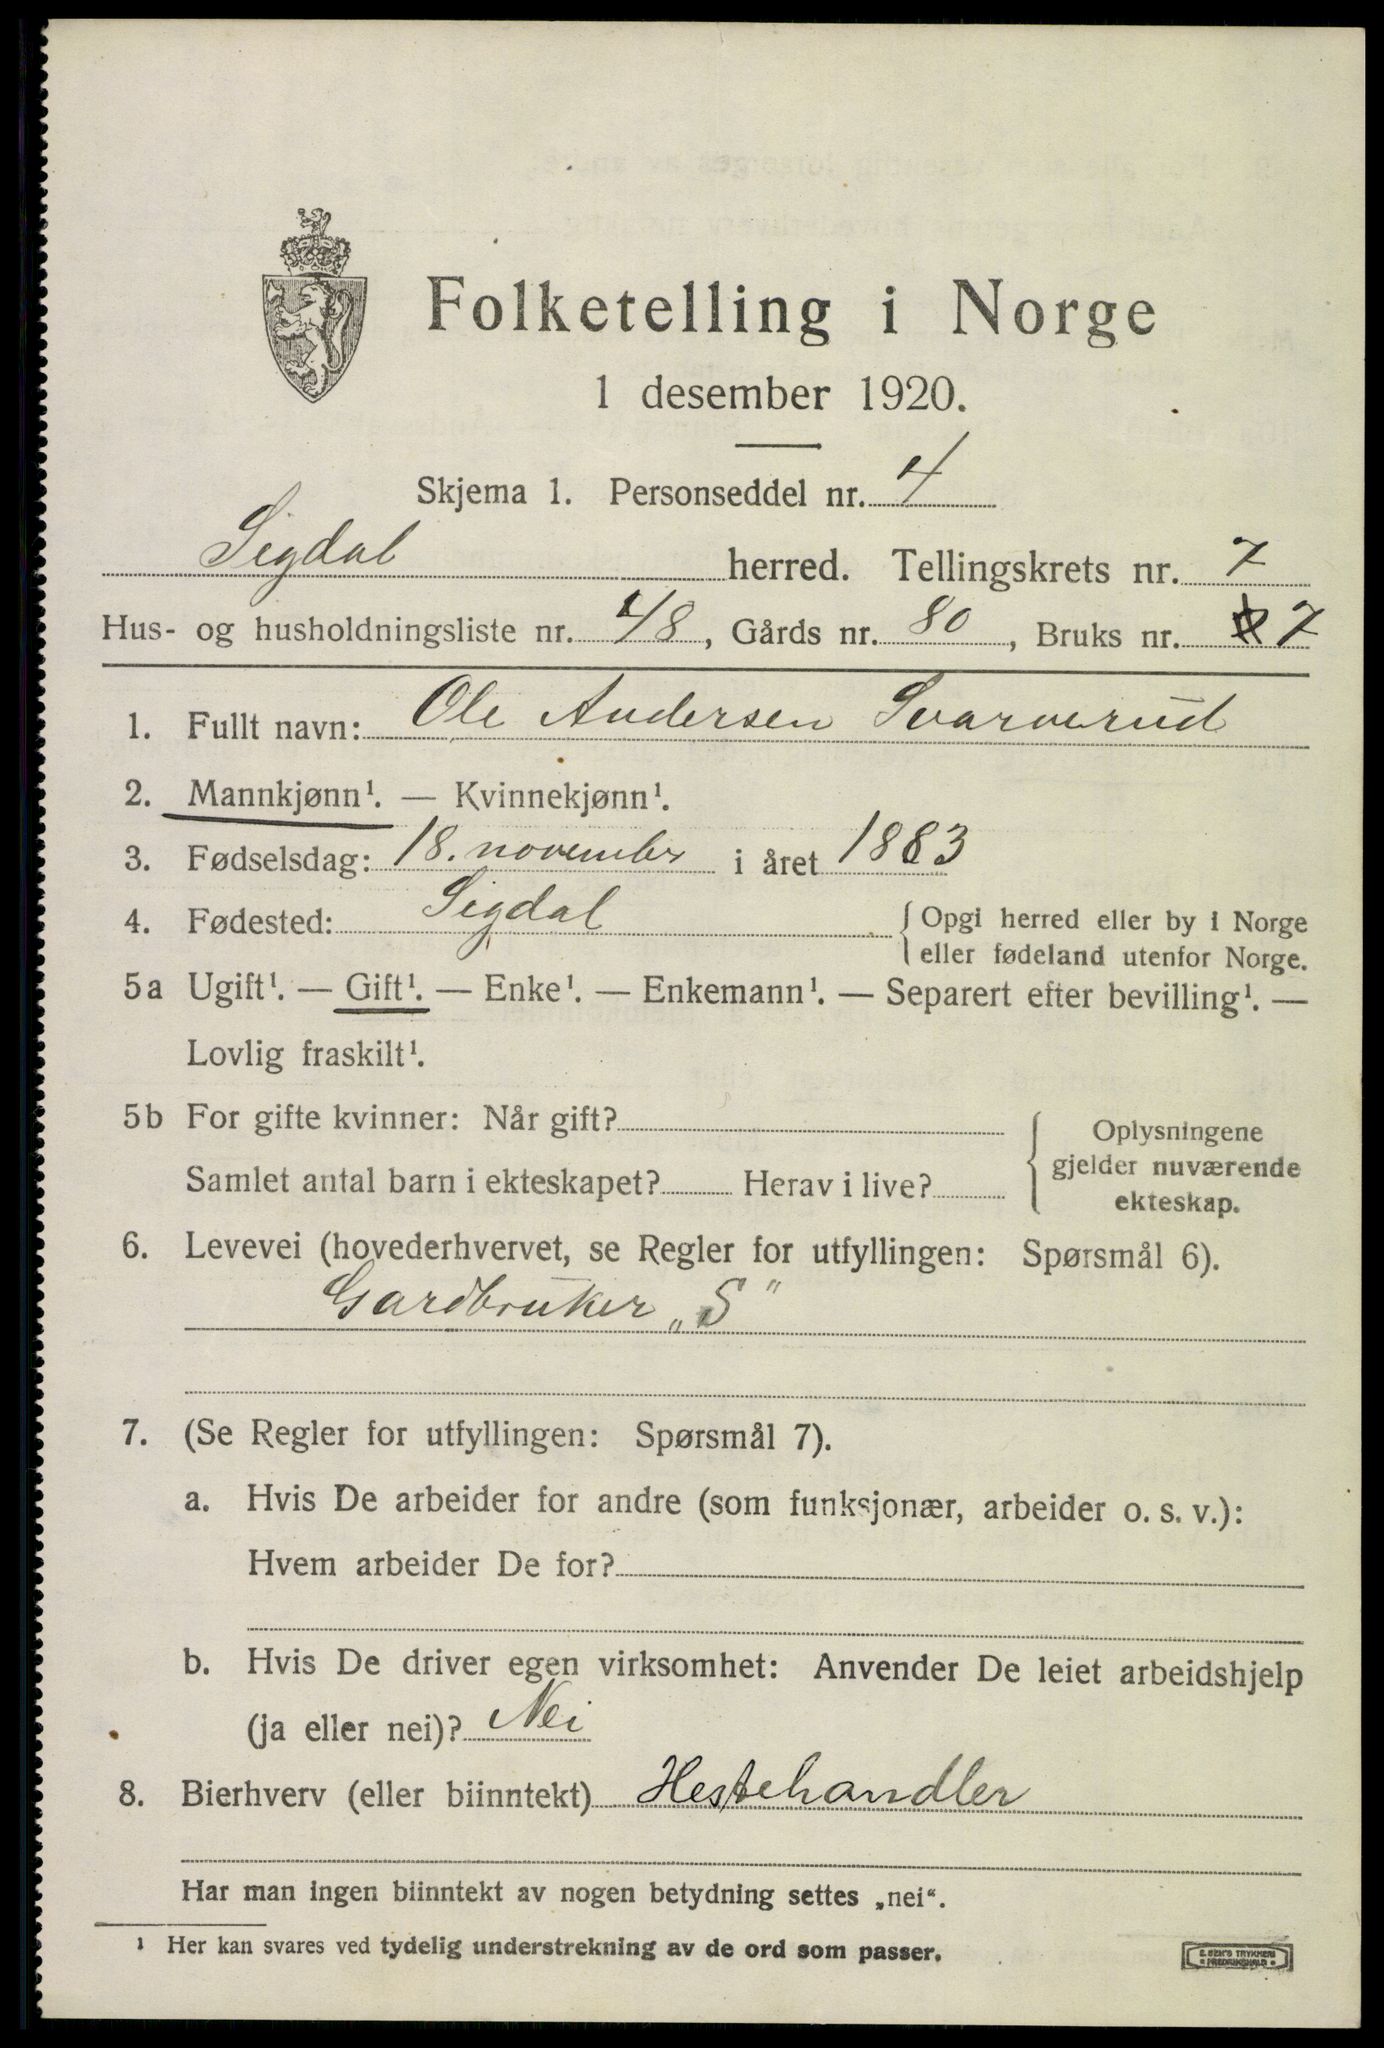 Folketelling i Norge
1 desember 1920.
Skjema 1. Personseddel nr. 4
Sigdal herred. Tellingskrets nr. 7
Hus- og husholdningsliste nr. 48, Gårds nr. 80, Bruks nr. 7
1. Fullt navn: Ole Andersen Svarverud
2. Mannkjønn¹. — Kvinnekjønn¹.
3. Fødselsdag: 18. november i året 1883
4. Fødested: Sigdal {Opgi herred eller by i Norge
eller fødeland utenfor Norge.
5a Ugift¹. — Gift¹. — Enke¹. — Enkemann¹. — Separert efter bevilling¹. —
Lovlig fraskilt¹.
5b For gifte kvinner: Når gift? Oplysningene
gjelder nuværende
Samlet antal barn i ekteskapet? Herav i live? ekteskap.
6. Levevei (hovederhvervet, se Regler for utfyllingen: Spørsmål 6).
Gardbruker „S"
7. (Se Regler for utfyllingen: Spørsmål 7).
a. Hvis De arbeider for andre (som funksjonær, arbeider o. s. v.):
Hvem arbeider De for?
b. Hvis De driver egen virksomhet: Anvender De leiet arbeidshjelp
(ja eller nei)? Nei
8. Bierhverv (eller biinntekt) Hestehandler
Har man ingen biinntekt av nogen betydning settes „nei“.
¹ Her kan svares ved tydelig understrekning av de ord som passer.
E. SEM'S TRYKKERI
FREDRIKSHALD